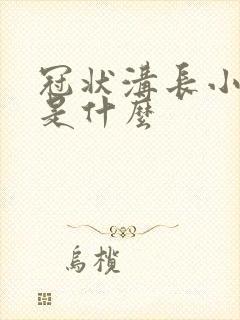 冠状溝長小
是什麼
烏欖